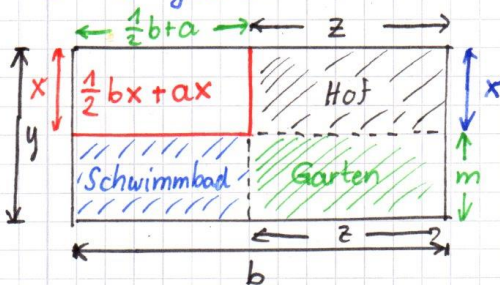 ½b+a z
x ½bx+ax Hof x
y
Schwimmbad Garten m
z
b